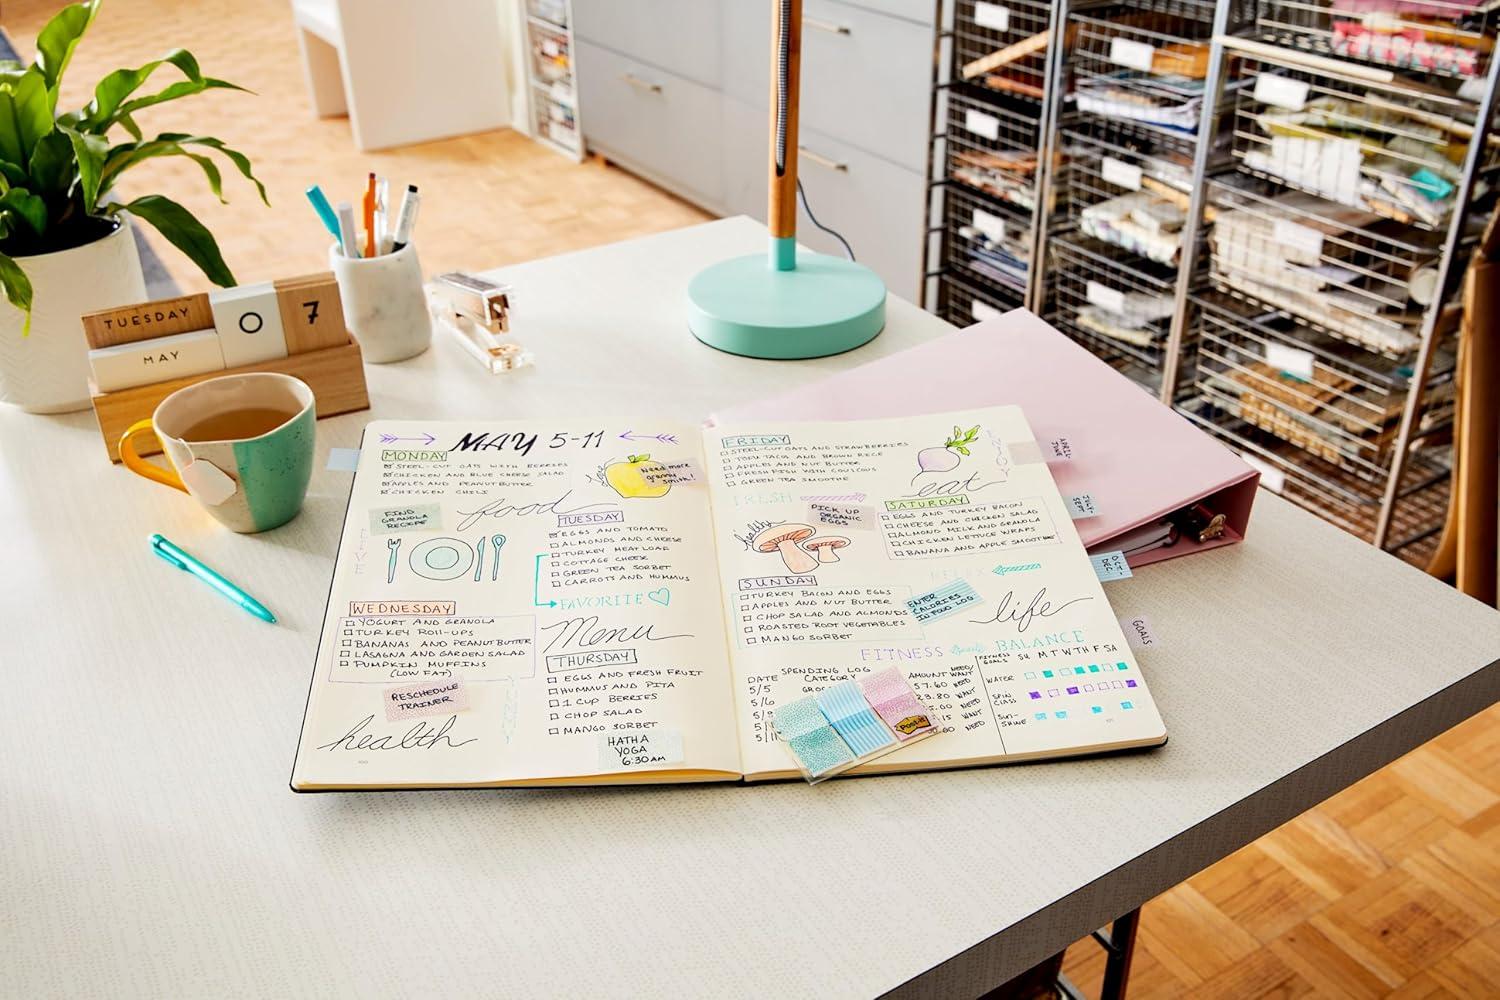 TUESDAY
MAY
0 7
MAY 5-11
MONDAY
STEEL-CUT OATS WITH BERRIES
CHICKEN AND BLUE CHEESE SALAD
APPLES AND PEANUT BUTTER
CHICKEN CHILI
Need more
granny
smith!
FIND
GRANOLA
RECIPE
food
LIVE
TUESDAY
EGGS AND TOMATO
ALMONDS AND CHEESE
TURKEY MEATLOAF
COTTAGE CHEESE
GREEN TEA SORBET
CARROTS AND HUMMUS
FAVORITE
Menu
WEDNESDAY
YOGURT AND GRANOLA
TURKEY ROLL-UPS
BANANAS AND PEANUT BUTTER
LASAGNA AND GARDEN SALAD
PUMPKIN MUFFINS
(LOW FAT)
RESCHEDULE
TRAINER
health
THURSDAY
EGGS AND FRESH FRUIT
HUMMUS AND PITA
1 CUP BERRIES
CHOP SALAD
MANGO SORBET
HATHA
YOGA
6:30AM
100
FRIDAY
STEEL-CUT OATS AND STRAWBERRIES
TOFU TACO AND BROWN RICE
APPLES AND NUT BUTTER
FRESH FISH WITH COUSCOUS
GREEN TEA SMOOTHIE
ENJOY
eat
FRESH
PICK UP
ORGANIC
EGGS
healthy
SATURDAY
EGGS AND TURKEY BACON
CHEESE AND CHICKEN SALAD
ALMOND MILK AND GRANOLA
CHICKEN LETTUCE WRAPS
BANANA AND APPLE SMOOTHIE
RELAX
SUNDAY
TURKEY BACON AND EGGS
APPLES AND NUT BUTTER
CHOP SALAD AND ALMONDS
ROASTED ROOT VEGETABLES
MANGO SORBET
ENTER
CALORIES
IN FOOD LOG
life
FITNESS BALANCE
SPENDING LOG
DATE CATEGORY AMOUNT NEED/WANT
5/5 57.60 NEED
5/6 WANT
NEED
WANT
NEED
FITNESS
GOALS SU M T W TH F SA
WATER
SPIN
CLASS
SUN-
SHINE
Post-it
APRIL
JUNE
JULY-
SEPT
OCT-
DEC.
GOALS